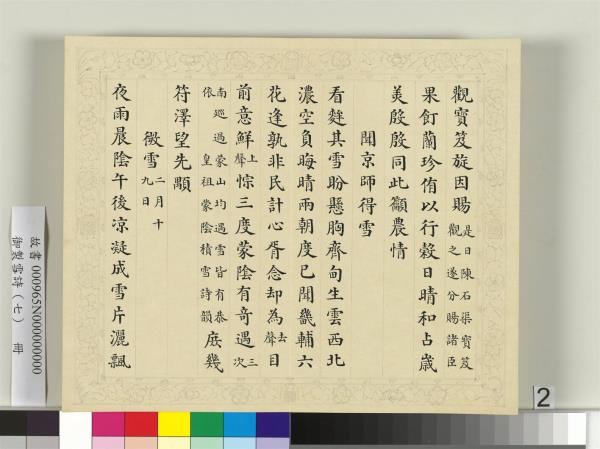 觀寶笈旋因賜是日陳石渠寶笈
觀之遂分賜諸臣
果飣蘭珍侑以行穀日晴和占歲
美殷殷同此籲農情
聞京師得雪
看麰其雪盼懸胸齊甸生雲西北
濃空負晦晴兩朝度已聞畿輔六
花逢孰非民計心胥念却為去聲目
前意鮮上聲悰三度蒙陰有奇遇三次
南巡過蒙山均遇雪皆有恭
依皇祖蒙陰積雪詩韻庶幾
符澤望先顒
微雪二月十九日
夜雨晨陰午後凉凝成雪片灑飄
故書 000965N000000000
御製雪詩(七) 冊
2